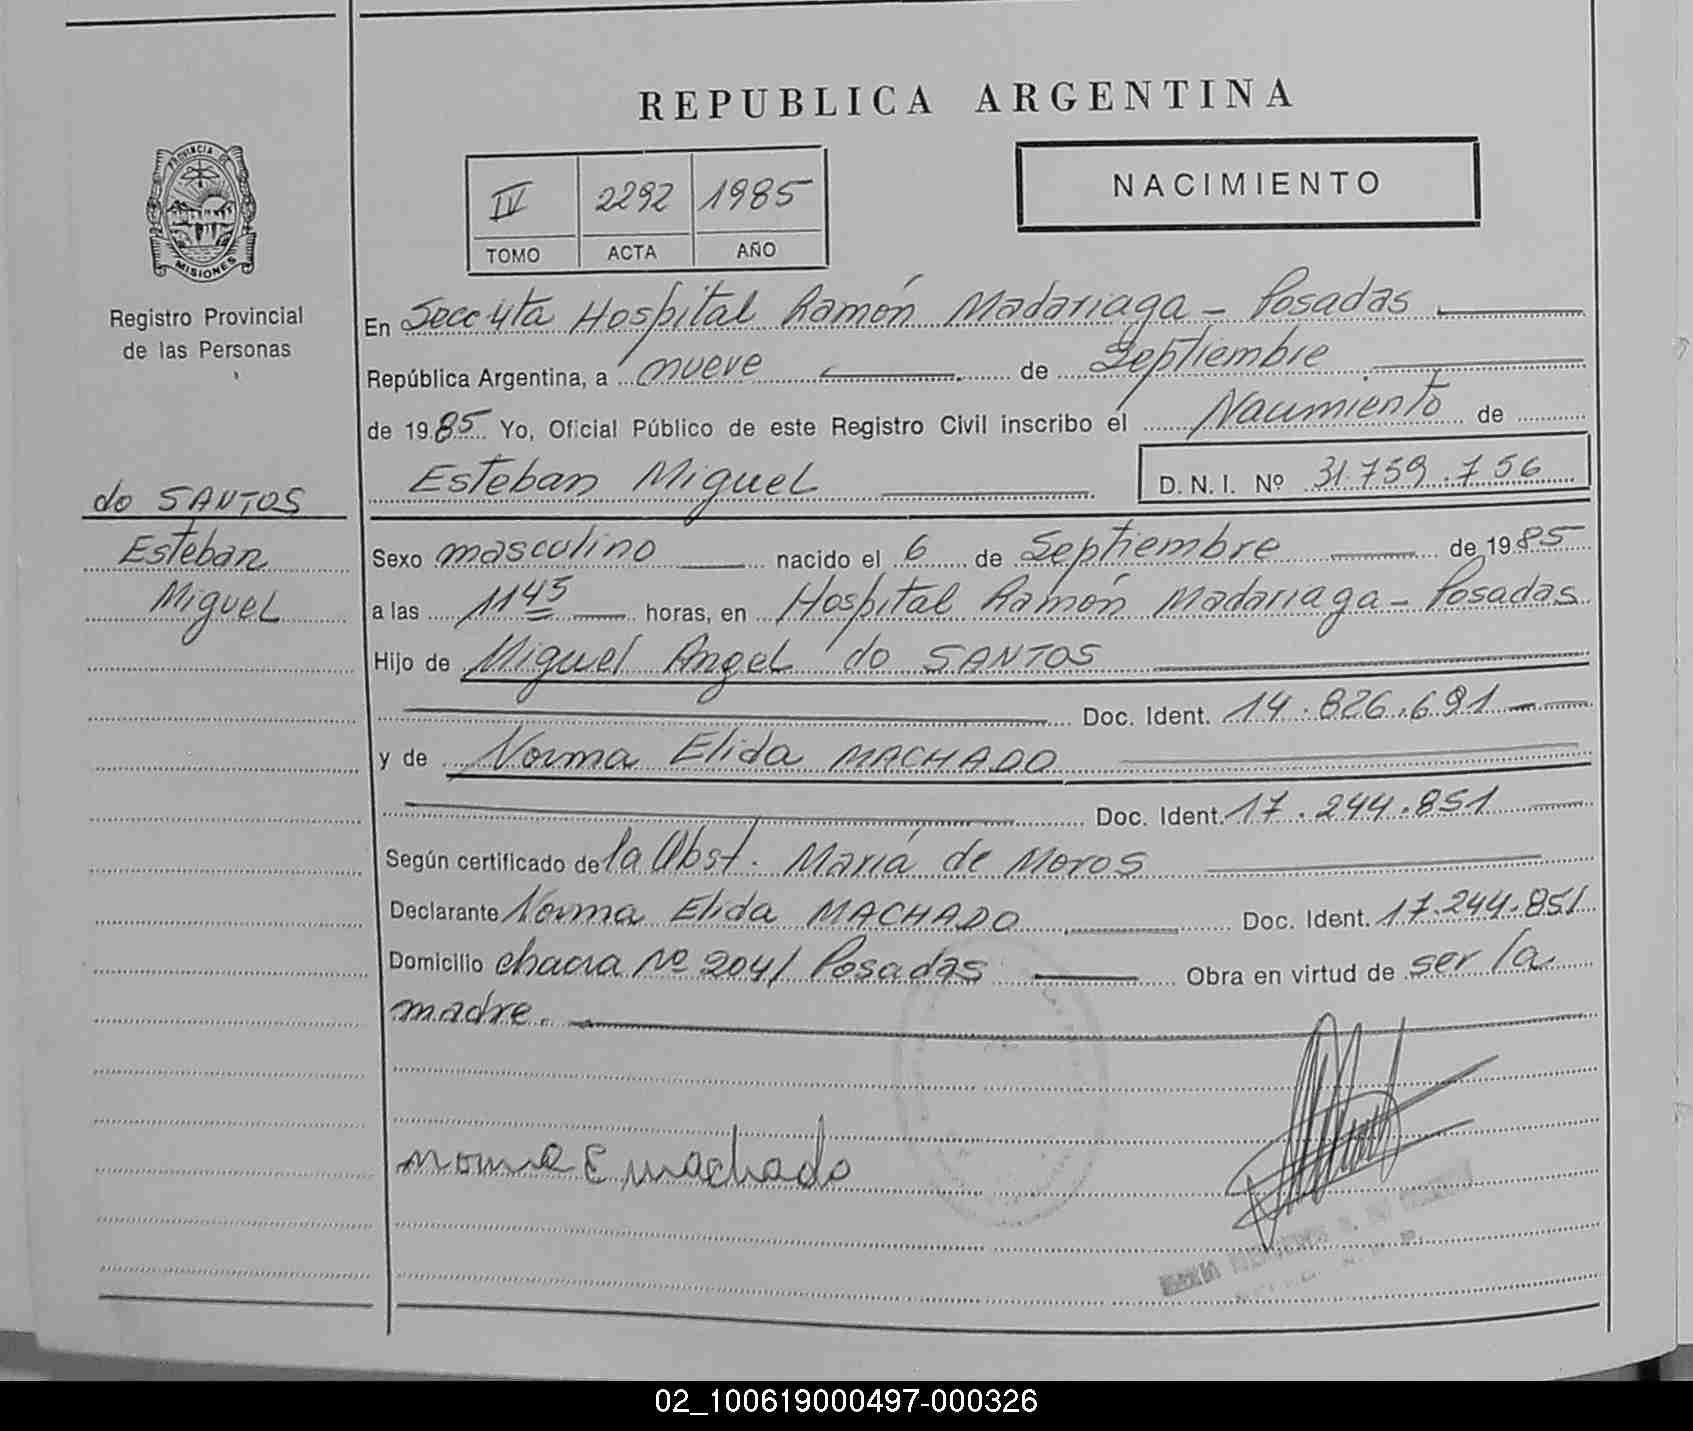 REPUBLICA ARGENTINA
PROVINCIA DE
MISIONES
Registro Provincial
de las Personas
IV 2292 1985
TOMO ACTA AÑO
NACIMIENTO
En Secc 4ta Hospital Ramón Madariaga - Posadas
República Argentina, a nueve de Septiembre
de 1985 Yo, Oficial Público de este Registro Civil inscribo el Nacimiento de
Esteban Miguel D. N. I. Nº 31.759.756
do SANTOS
Esteban
Miguel
Sexo masculino nacido el 6 de Septiembre de 1985
a las 1145 horas, en Hospital Ramón Madariaga - Posadas
Hijo de Miguel Angel do SANTOS
Doc. Ident. 14.826.691
y de Norma Elida MACHADO
Doc. Ident. 17.244.851
Según certificado de la Obst. María de Moros
Declarante Norma Elida MACHADO Doc. Ident. 17.244.851
Domicilio chacra Nº 204/ Posadas Obra en virtud de ser la
madre.
Norma E machado
02_100619000497-000326